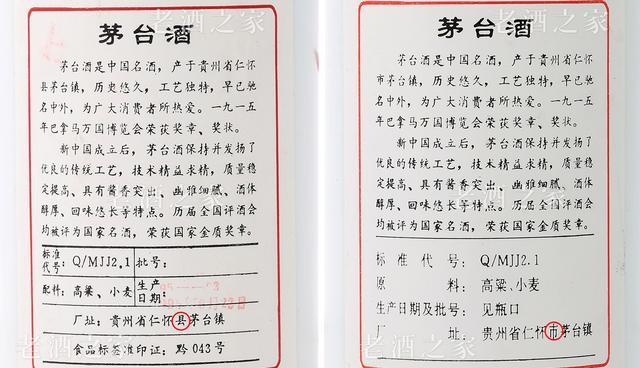 茅台酒
茅台酒是中国名酒，产于贵州省仁怀
县茅台镇，历史悠久，工艺独特，早已驰
名中外，为广大消费者所热爱。一九一五
年巴拿马万国博览会荣获奖章、奖状。
新中国成立后，茅台酒保持并发扬了
优良的传统工艺，技术精益求精，质量稳
定提高、具有酱香突出、幽雅细腻、酒体
醇厚、回味悠长等特点。历届全国评酒会
均被评为国家名酒，荣获国家金质奖章。
标准代号：Q/MJJ2.1 批号：
配料：高粱、小麦 生产日期：
厂址：贵州省仁怀县茅台镇
食品标签准印证：黔043号
茅台酒
茅台酒是中国名酒，产于贵州省仁怀
市茅台镇，历史悠久，工艺独特，早已驰
名中外，为广大消费者所热爱。一九一五
年巴拿马万国博览会荣获奖章、奖状。
新中国成立后，茅台酒保持并发扬了
优良的传统工艺，技术精益求精，质量稳
定提高、具有酱香突出、幽雅细腻、酒体
醇厚、回味悠长等特点。历届全国评酒会
均被评为国家名酒，荣获国家金质奖章。
标准代号：Q/MJJ2.1
原料：高粱、小麦
生产日期及批号：见瓶口
厂址：贵州省仁怀市茅台镇
老酒之家
老酒之家
老酒之家
老酒之家